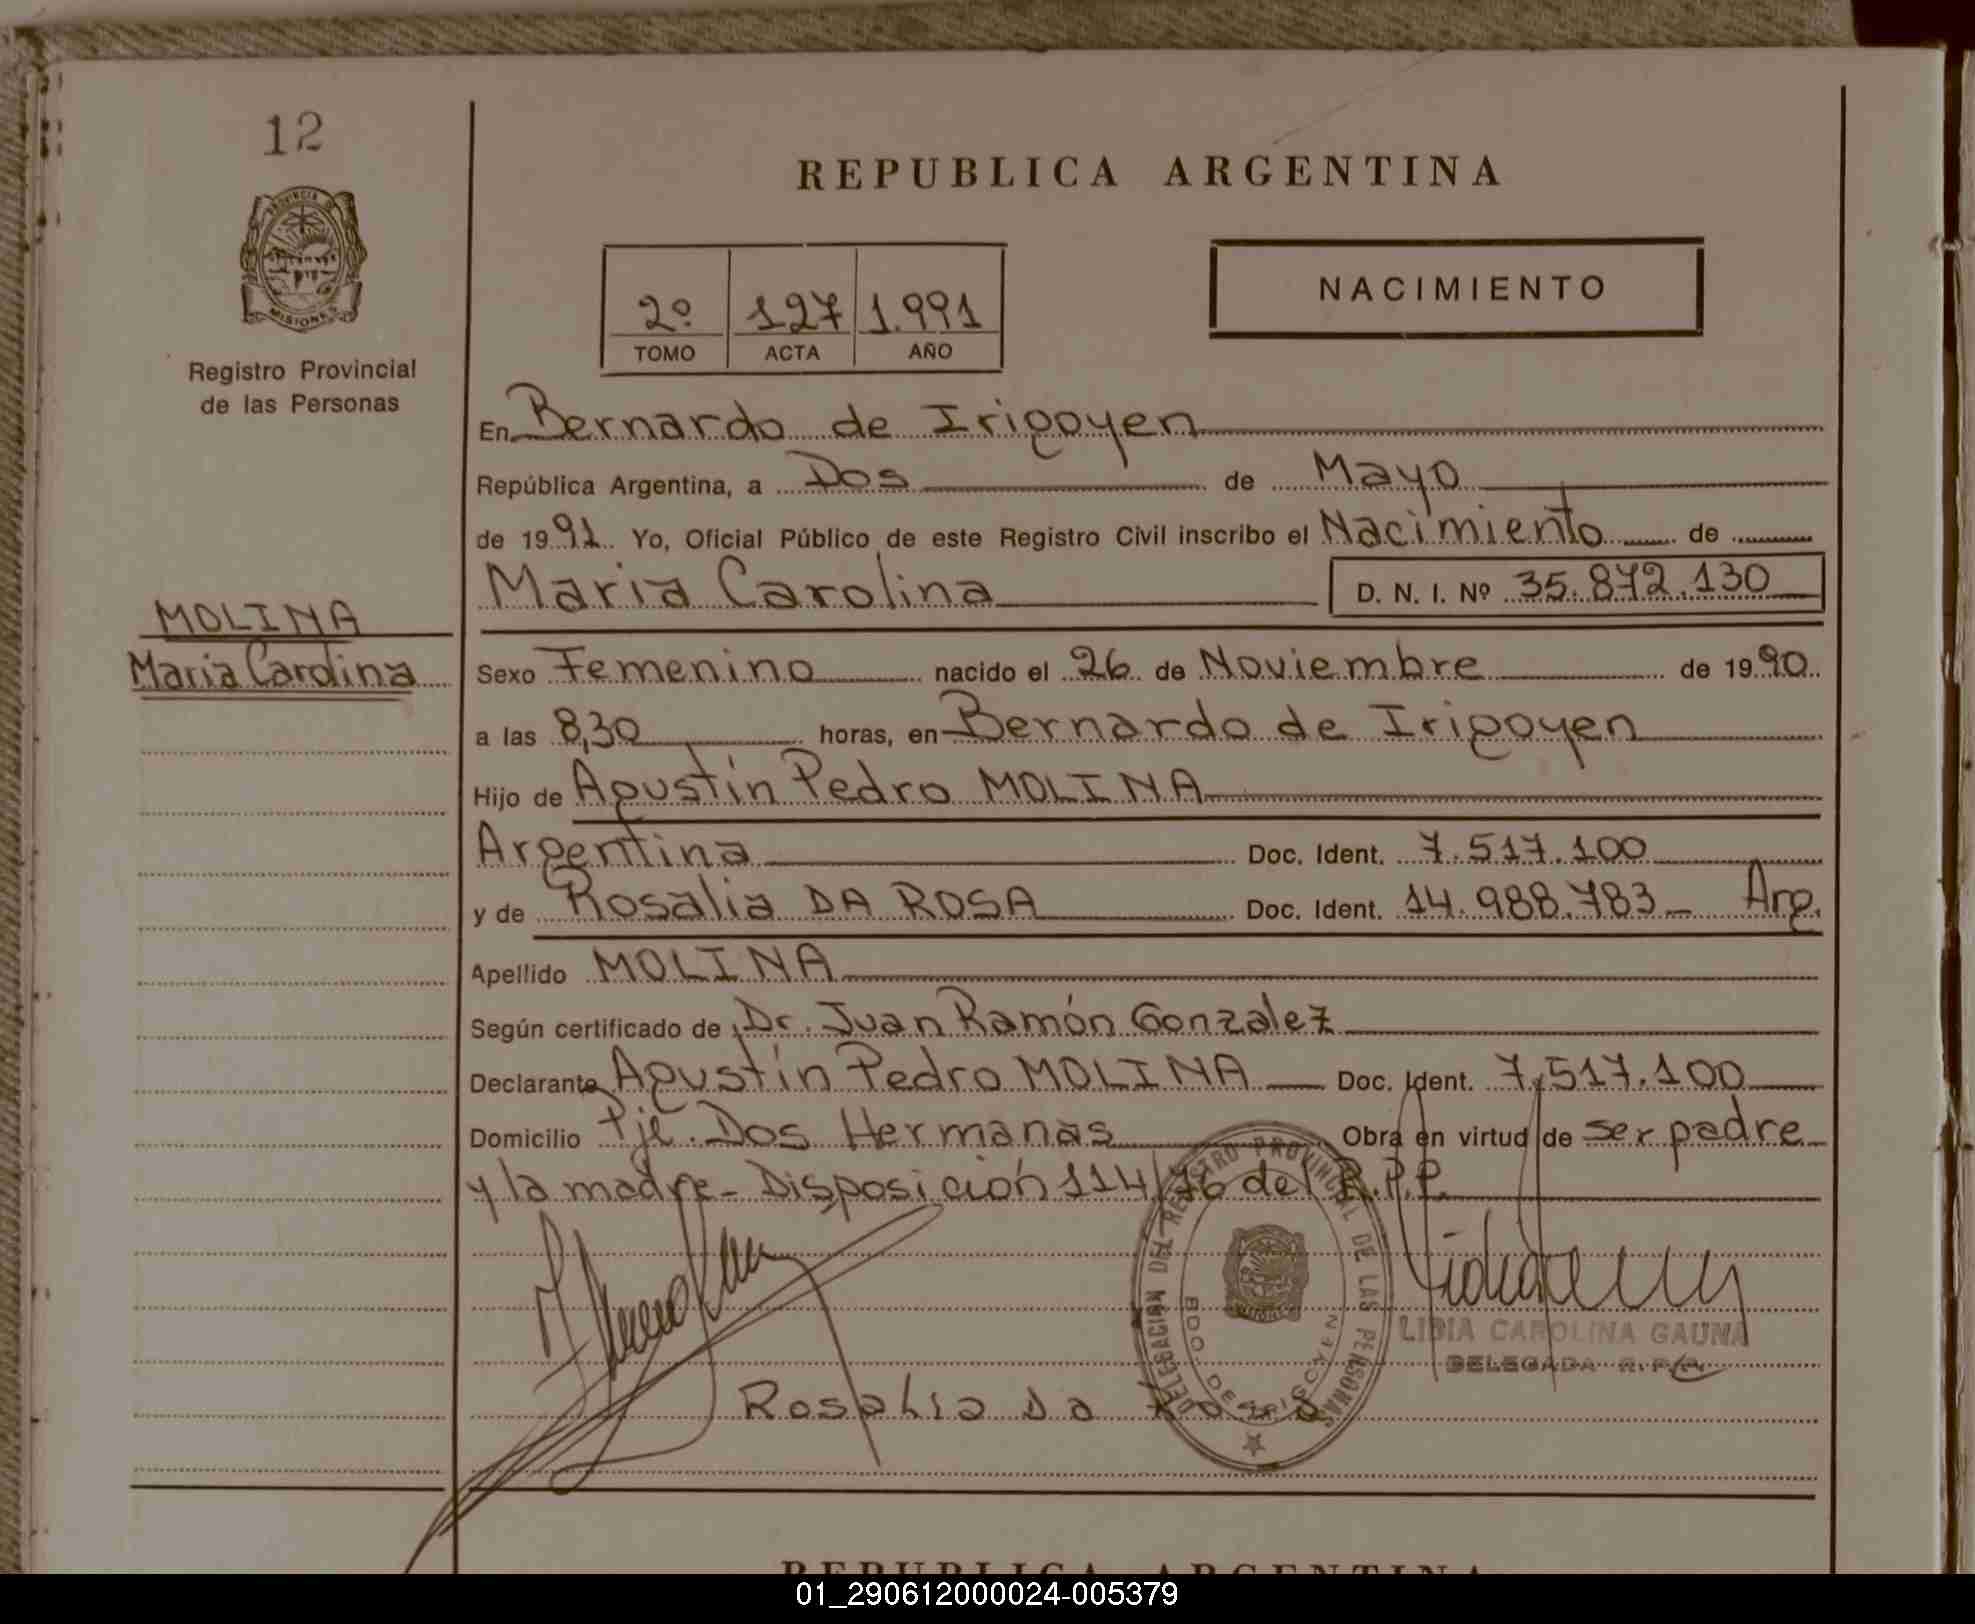 12
PROVINCIA DE
MISIONES
Registro Provincial
de las Personas
MOLINA
Maria Carolina
REPUBLICA ARGENTINA
2º 127 1.991
TOMO ACTA AÑO
NACIMIENTO
En Bernardo de Irigoyen
República Argentina, a Dos de Mayo
de 1991. Yo, Oficial Público de este Registro Civil inscribo el Nacimiento de
Maria Carolina D. N. I. Nº 35.872.130
Sexo Femenino nacido el 26 de Noviembre de 1990
a las 8,30 horas, en Bernardo de Irigoyen
Hijo de Agustín Pedro MOLINA
Argentina Doc. Ident. 7.517.100
y de Rosalia DA ROSA Doc. Ident. 14.988.783 - Arg.
Apellido MOLINA
Según certificado de Dr. Juan Ramón Gonzalez
Declarante Agustín Pedro MOLINA Doc. Ident. 7.517.100
Domicilio Pje. Dos Hermanas Obra en virtud de ser padre
y la madre - Disposición 114/76 del R.P.P.
DELEGACION DEL REGISTRO PROVINCIAL DE LAS PERSONAS
BDO. DE IRIGOYEN
LIDIA CAROLINA GAUNA
DELEGADA R.P.P.
Rosalia Da Rosa
REPUBLICA ARGENTINA
01_290612000024-005379